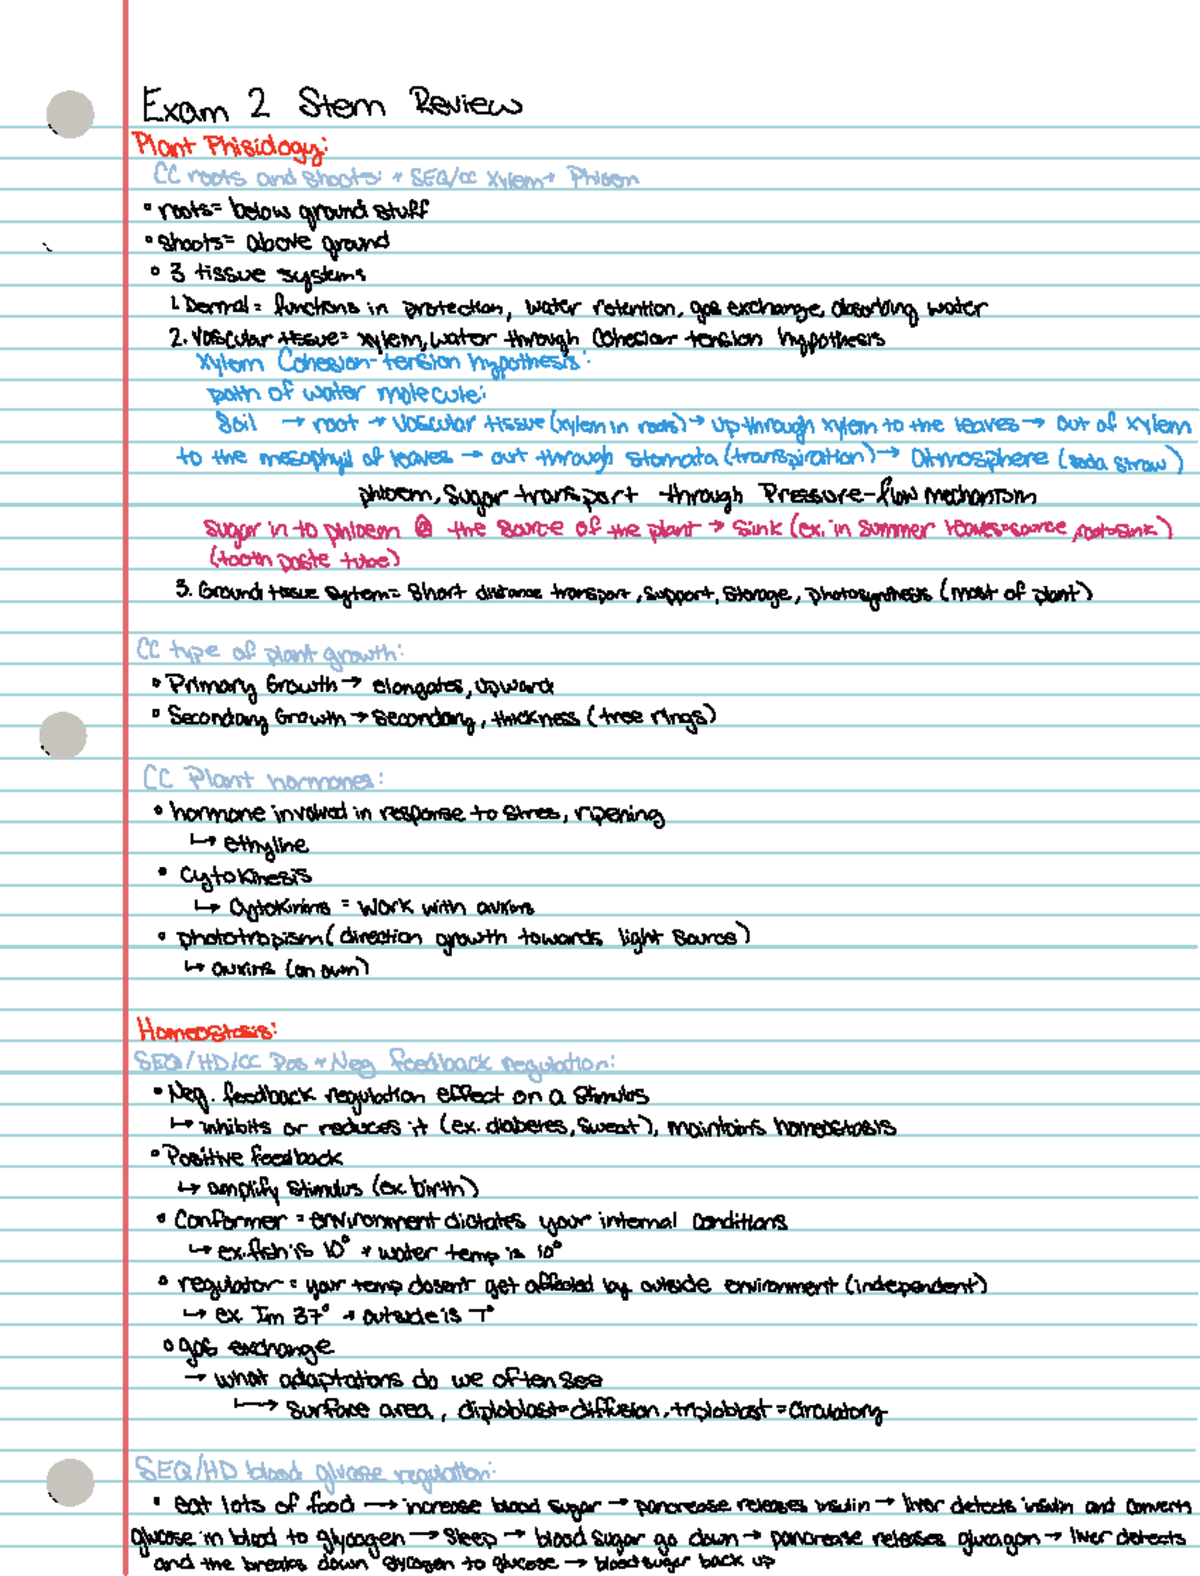 Exam 2 Stem Review
Plant Phisiology:
CC roots and shoots: + SEQ/CC Xylem + Phloem
• roots = below ground stuff
• shoots = above ground
• 3 tissue systems
1. Dermal = functions in protection, water retention, gas exchange, absorbing water
2. Vascular tissue = xylem, water through Cohesion tension hypothesis
Xylem Cohesion-tension hypothesis:
path of water molecule:
Soil → root → Vascular tissue (xylem in roots) → up through xylem to the leaves → out of xylem
to the mesophyll of leaves → out through Stomata (transpiration) → Atmosphere (soda straw)
phloem, Sugar transport through Pressure-flow mechanism
Sugar in to phloem @ the Source of the plant → Sink (ex. in Summer leaves=source, root=sink)
(tooth paste tube)
3. Ground tissue System = Short distance transport, Support, Storage, photosynthesis (most of plant)
CC type of plant growth:
• Primary Growth → elongates, upward
• Secondary Growth → Secondary, thickness (tree rings)
CC Plant hormones:
• hormone involved in response to Stress, ripening
↳ ethyline
• Cytokinesis
↳ Cytokinins = Work with auxins
• phototropism (direction growth towards light Source)
↳ auxins (on own)
Homeostasis:
SEQ/HD/CC Pos + Neg feedback regulation:
• Neg. feedback regulation effect on a Stimulus
↳ inhibits or reduces it (ex. diabetes, Sweat), maintains homeostasis
• Positive feedback
↳ amplify Stimulus (ex birth)
• Conformer = environment dictates your internal Conditions
↳ ex. fish is 10° + water temp is 10°
• regulator = your temp doesn't get affected by outside environment (independent)
↳ ex Im 37° + outside is 7°
• gas exchange
→ what adaptations do we often See
↳ Surface area, diploblast=diffusion, triploblast = Circulatory
SEQ/HD blood glucose regulation:
• eat lots of food → increase blood Sugar → pancrease releases insulin → liver detects insulin and Converts
glucose in blood to glycogen → Sleep → blood Sugar go down → pancrease releases glucagon → liver detects
and the breaks down glycogen to glucose → blood sugar back up